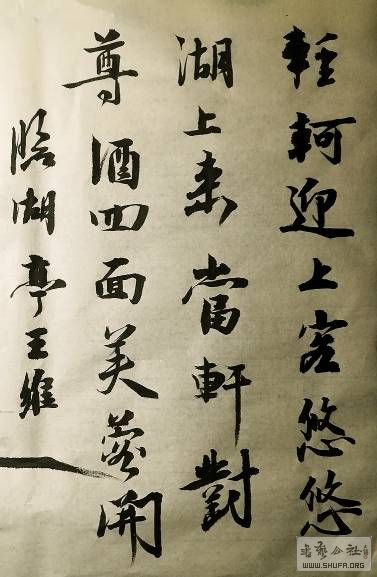 輕軻迎上客悠悠
湖上来當軒對
尊酒四面美蓉開
臨湖亭王維
書藝公社
WWW.SHUFA.ORG